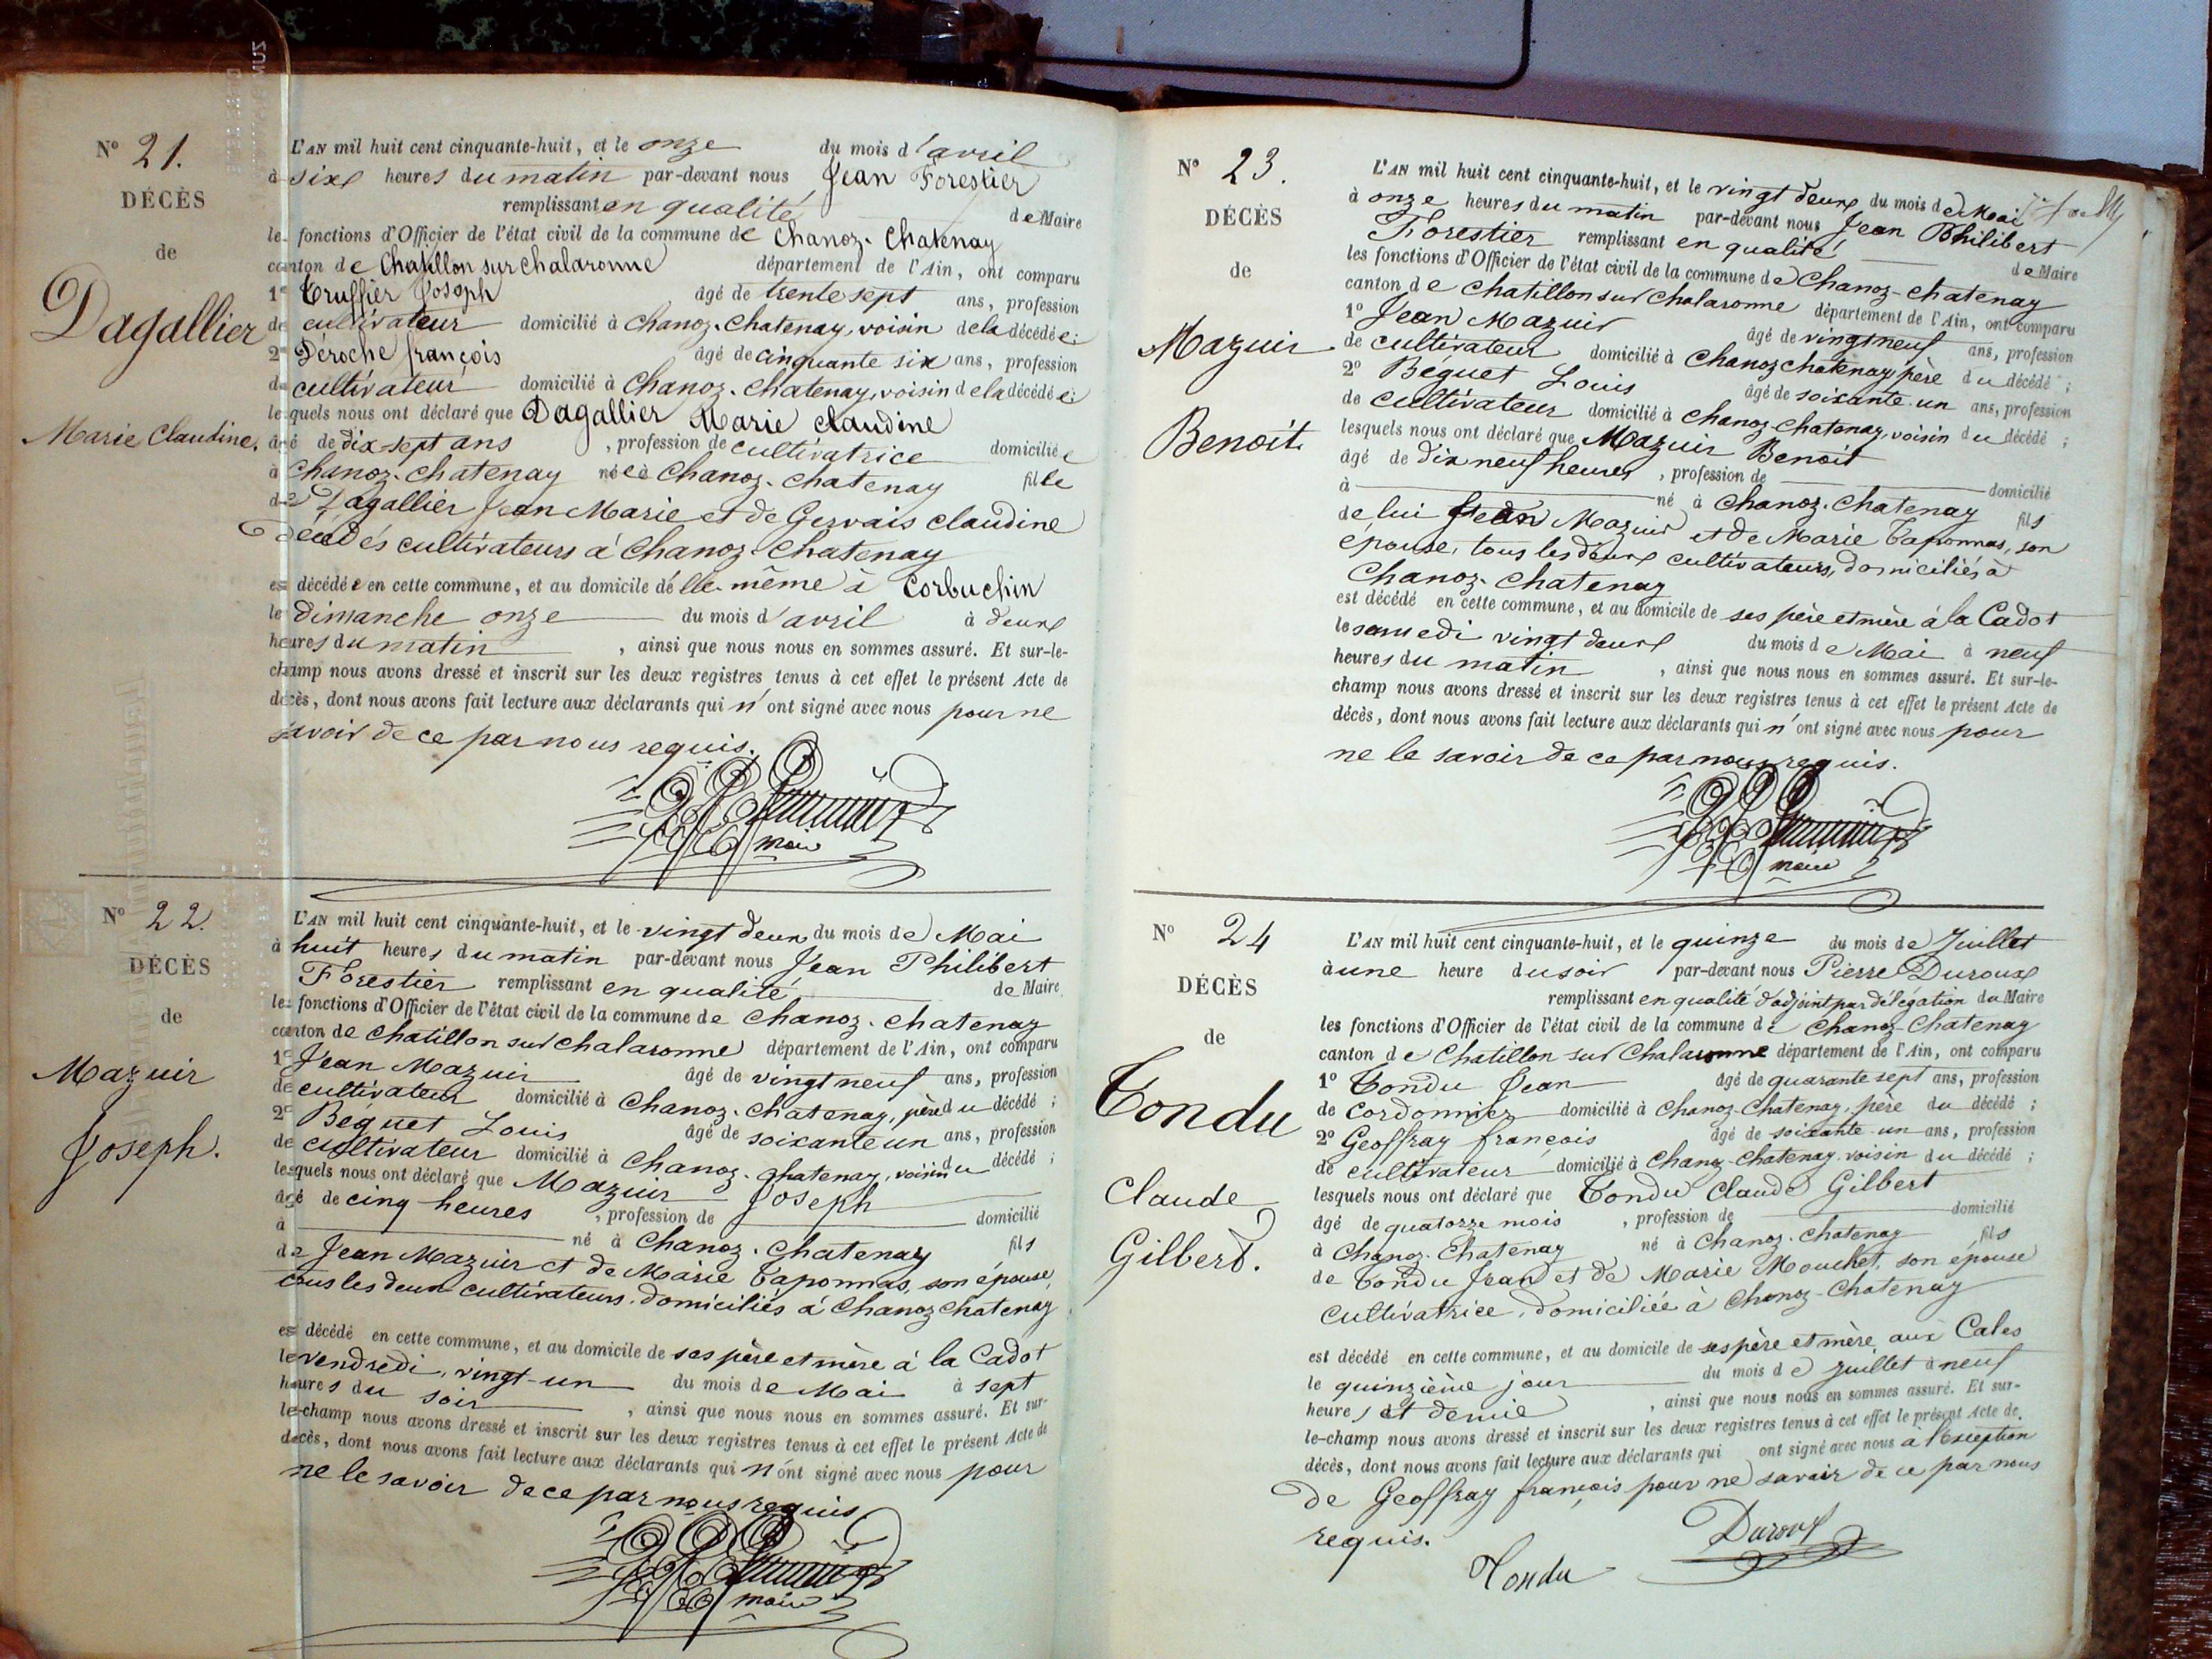 N° 21.
DÉCÈS
de
Dagallier
Marie Claudine.
L'AN mil huit cent cinquante-huit, et le onze du mois d'avril
à six heures du matin par-devant nous Jean Forestier
remplissant en qualité de Maire
les fonctions d'Officier de l'état civil de la commune de Chanoz-Chatenay
canton de Chatillon sur Chalaronne département de l'Ain, ont comparu
1° Truffier Joseph âgé de trente sept ans, profession
de cultivateur domicilié à Chanoz-Chatenay, voisin de la décédée;
2° Déroche françois âgé de cinquante six ans, profession
de cultivateur domicilié à Chanoz-Chatenay, voisin de la décédée;
lesquels nous ont déclaré que Dagallier Marie claudine
âgé de dix sept ans, profession de cultivatrice domiciliée
à Chanoz-Chatenay née à Chanoz-Chatenay fille
de Dagallier Jean Marie et de Gervais claudine
décédés cultivateurs à Chanoz-Chatenay
est décédée en cette commune, et au domicile d'elle-même à Corbuchin
le dimanche onze du mois d'avril à deux
heures du matin, ainsi que nous nous en sommes assuré. Et sur-le-
champ nous avons dressé et inscrit sur les deux registres tenus à cet effet le présent Acte de
décès, dont nous avons fait lecture aux déclarants qui n'ont signé avec nous pour ne
savoir de ce par nous requis.
maire
N° 22.
DÉCÈS
de
Mazuir
Joseph.
L'AN mil huit cent cinquante-huit, et le vingt deux du mois de Mai
à huit heures du matin par-devant nous Jean Philibert
Forestier remplissant en qualité de Maire
les fonctions d'Officier de l'état civil de la commune de Chanoz-Chatenay
canton de Chatillon sur Chalaronne département de l'Ain, ont comparu
1° Jean Mazuir âgé de vingt neuf ans, profession
de cultivateur domicilié à Chanoz-Chatenay, père du décédé;
2° Béguet Louis âgé de soixante un ans, profession
de cultivateur domicilié à Chanoz-Chatenay, voisin du décédé;
lesquels nous ont déclaré que Mazuir Joseph
âgé de cinq heures, profession de domicilié
à né à Chanoz-Chatenay fils
de Jean Mazuir et de Marie Taponnas, son épouse,
tous les deux cultivateurs domiciliés à Chanoz Chatenay
est décédé en cette commune, et au domicile de ses père et mère à la Cadot
le vendredi, vingt-un du mois de Mai à sept
heures du soir, ainsi que nous nous en sommes assuré. Et sur-
le-champ nous avons dressé et inscrit sur les deux registres tenus à cet effet le présent Acte de
décès, dont nous avons fait lecture aux déclarants qui n'ont signé avec nous pour
ne le savoir de ce par nous requis
maire
N° 23.
DÉCÈS
de
Mazuir
Benoit.
L'AN mil huit cent cinquante-huit, et le vingt deux du mois de Mai
à onze heures du matin par-devant nous Jean Philibert
Forestier remplissant en qualité de Maire
les fonctions d'Officier de l'état civil de la commune de Chanoz-Chatenay
canton de Chatillon sur Chalaronne département de l'Ain, ont comparu
1° Jean Mazuir âgé de vingt neuf ans, profession
de cultivateur domicilié à Chanoz chatenay père du décédé;
2° Béguet Louis âgé de soixante-un ans, profession
de cultivateur domicilié à Chanoz-Chatenay, voisin du décédé;
lesquels nous ont déclaré que Mazuir Benoit
âgé de dix neuf heures, profession de domicilié
à né à Chanoz-Chatenay fils
de lui Jean Mazuir et de Marie Taponnas, son
épouse, tous les deux cultivateurs, domiciliés à
Chanoz-Chatenay
est décédé en cette commune, et au domicile de ses père et mère à la Cadot
le samedi vingt deux du mois de Mai à neuf
heures du matin, ainsi que nous nous en sommes assuré. Et sur-le-
champ nous avons dressé et inscrit sur les deux registres tenus à cet effet le présent Acte de
décès, dont nous avons fait lecture aux déclarants qui n'ont signé avec nous pour
ne le savoir de ce par nous requis.
maire
N° 24
DÉCÈS
de
Tondu
Claude
Gilbert.
L'AN mil huit cent cinquante-huit, et le quinze du mois de Juillet
à une heure du soir par-devant nous Pierre Duroux
remplissant en qualité d'adjoint par délégation du Maire
les fonctions d'Officier de l'état civil de la commune de Chanoz-Chatenay
canton de Chatillon sur Chalaronne département de l'Ain, ont comparu
1° Tondu Jean âgé de quarante sept ans, profession
de cordonnier domicilié à Chanoz-Chatenay, père du décédé;
2° Geoffray françois âgé de soixante-un ans, profession
de cultivateur domicilié à Chanoz-Chatenay voisin du décédé;
lesquels nous ont déclaré que Tondu Claude Gilbert
âgé de quatorze mois, profession de domicilié
à Chanoz-Chatenay né à Chanoz-Chatenay fils
de Tondu Jean et de Marie Mouchet, son épouse
cultivatrice, domiciliée à Chanoz-Chatenay
est décédé en cette commune, et au domicile de ses père et mère aux Cales
le quinzième jour du mois de juillet à neuf
heures et demie, ainsi que nous nous en sommes assuré. Et sur-
le-champ nous avons dressé et inscrit sur les deux registres tenus à cet effet le présent Acte de
décès, dont nous avons fait lecture aux déclarants qui ont signé avec nous à l'exception
de Geoffray françois pour ne savoir de ce par nous
requis.
Duroux
Tondu